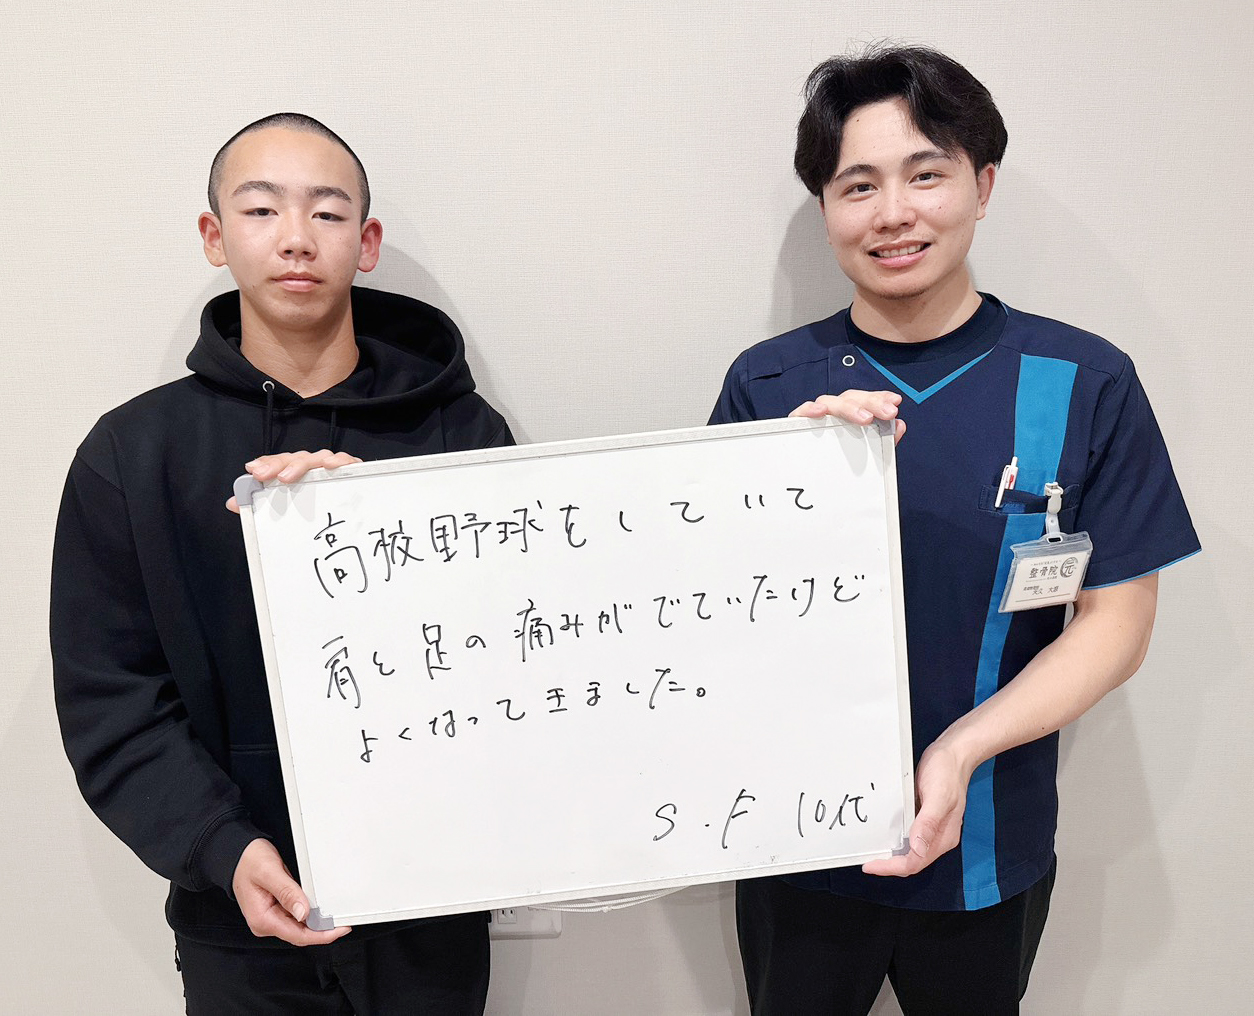 高校野球をしていて
肩と足の痛みがでていたけど
よくなってきました。
S.F 10代
整骨院 元